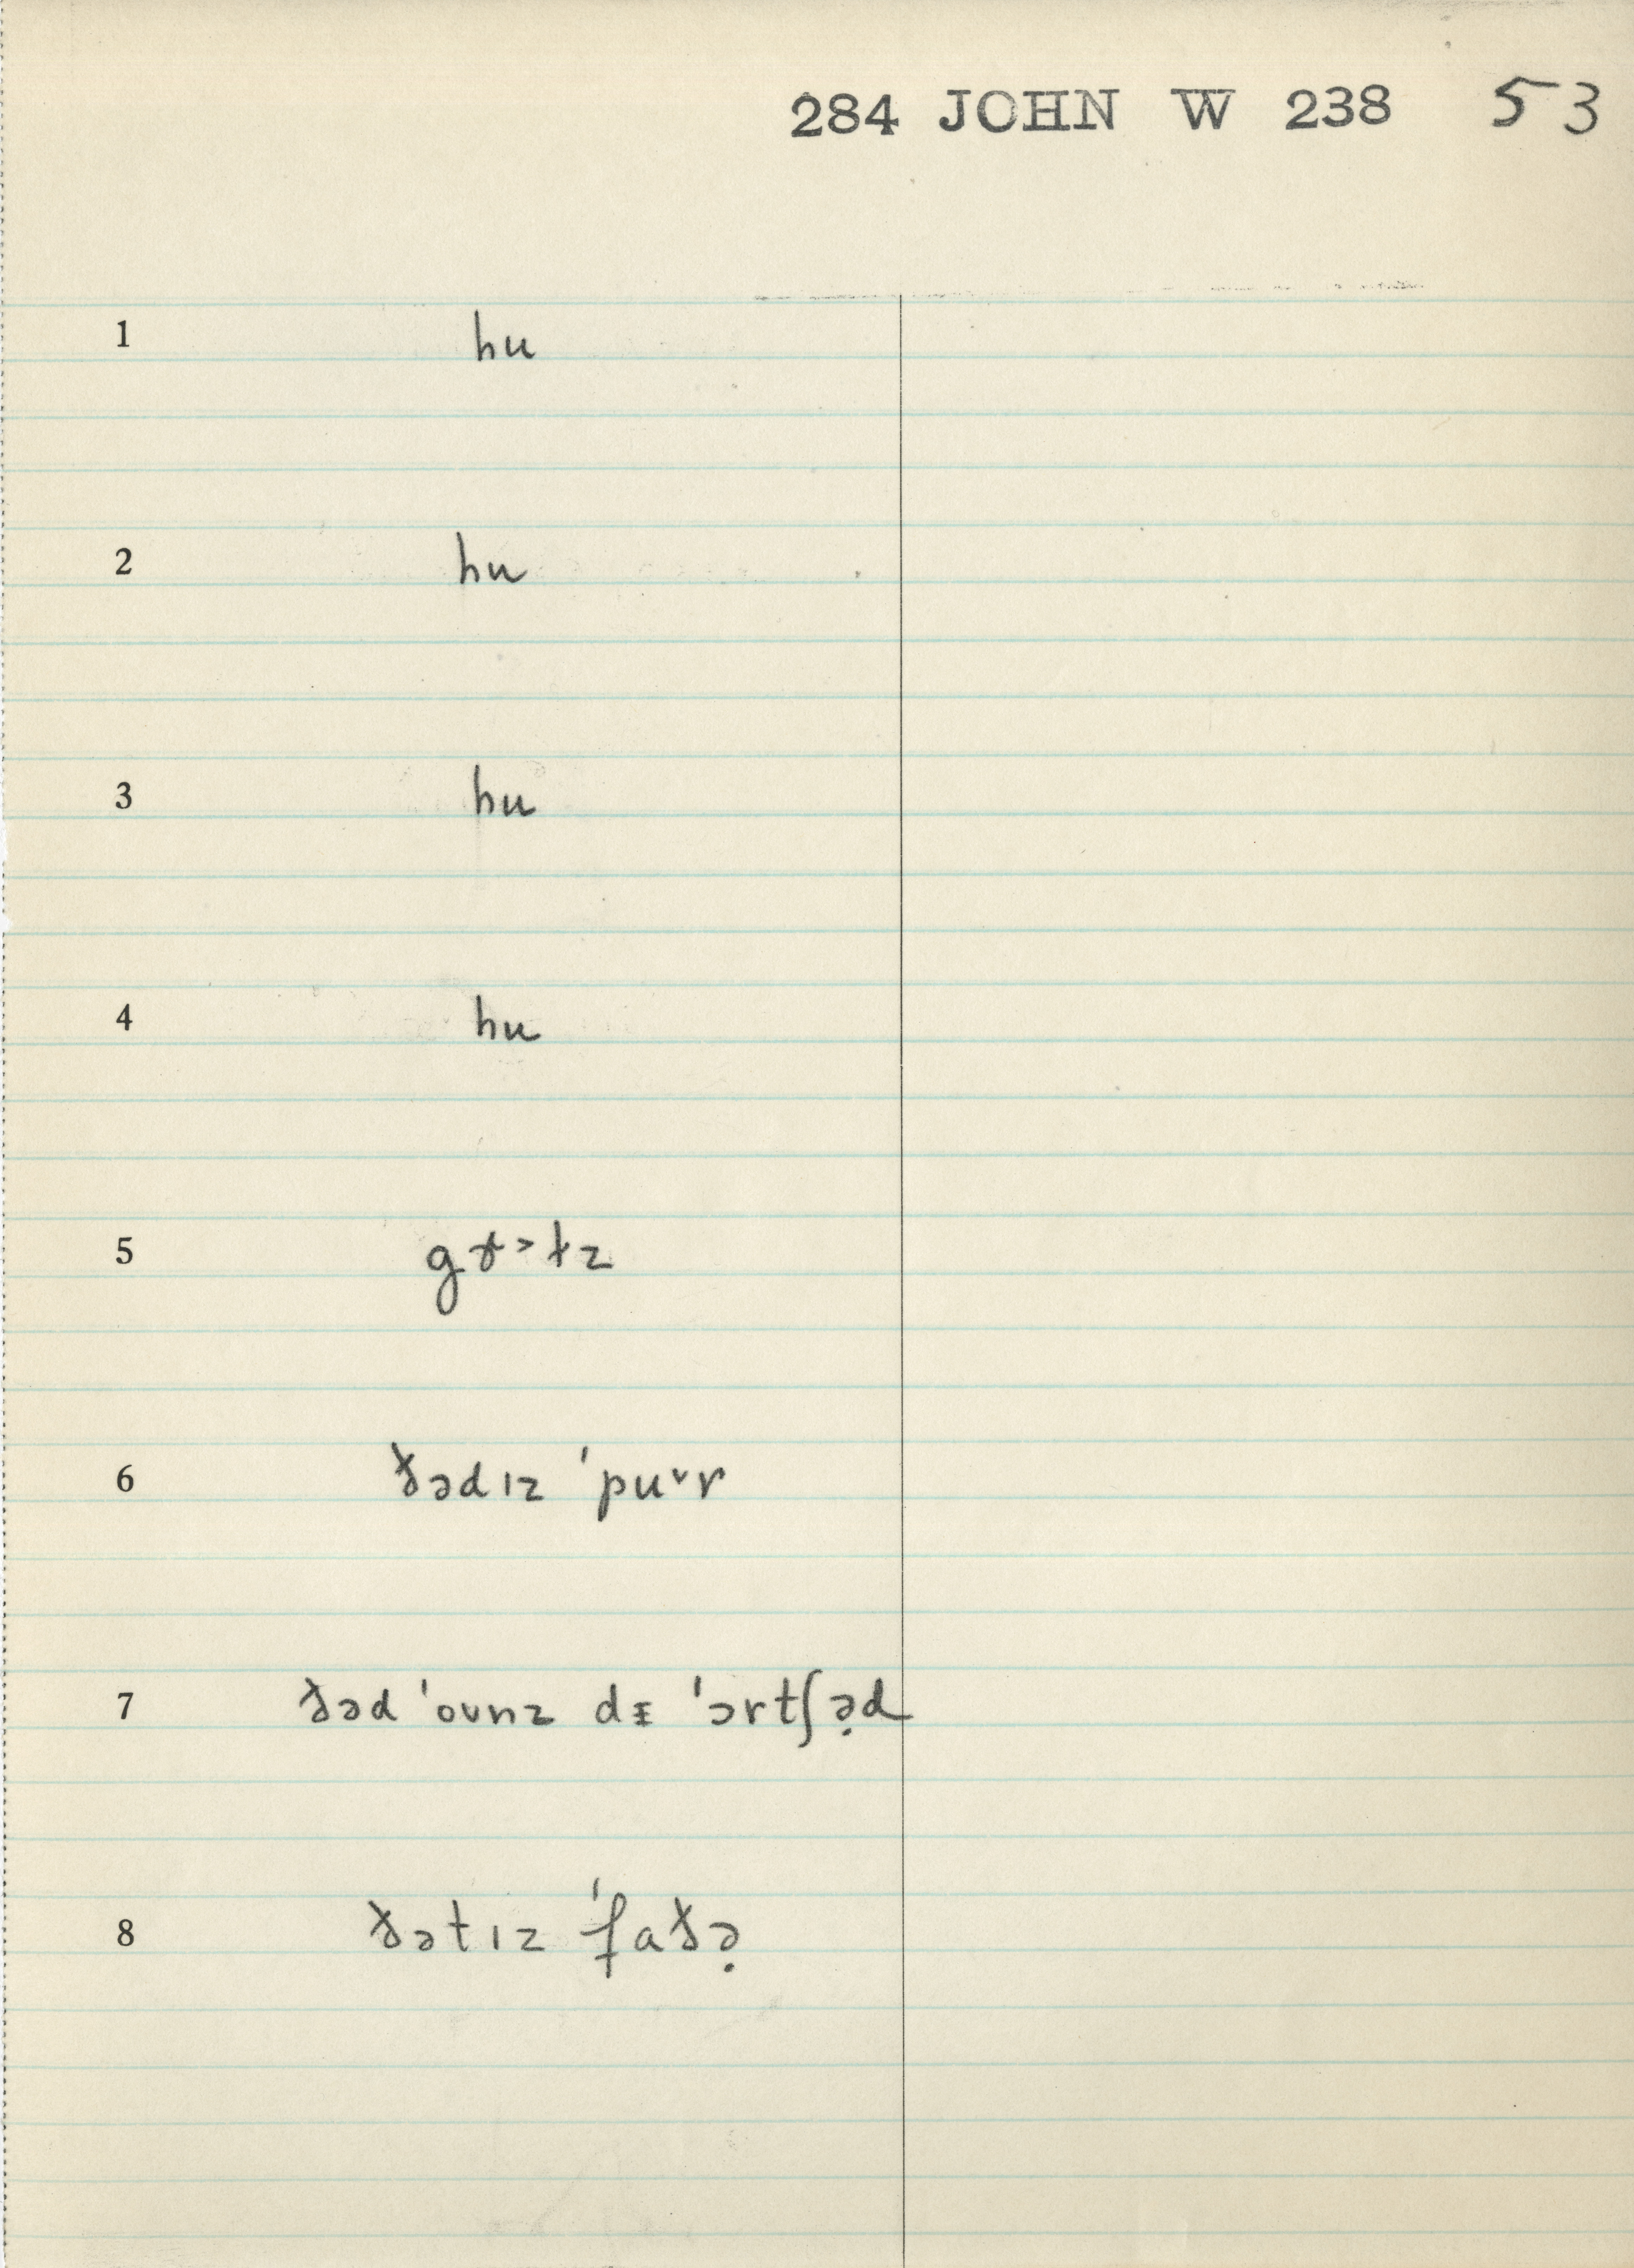 284 JOHN W 238 53
1 hu
2 hu
3 hu
4 hu
5 gɤ˃ɫz
6 ðədɪz ˈpu˅r
7 ðəd ˈoʊnz dᵻ ˈɔrtʃə̣d
8 ðətɪz ˈfaðə̣